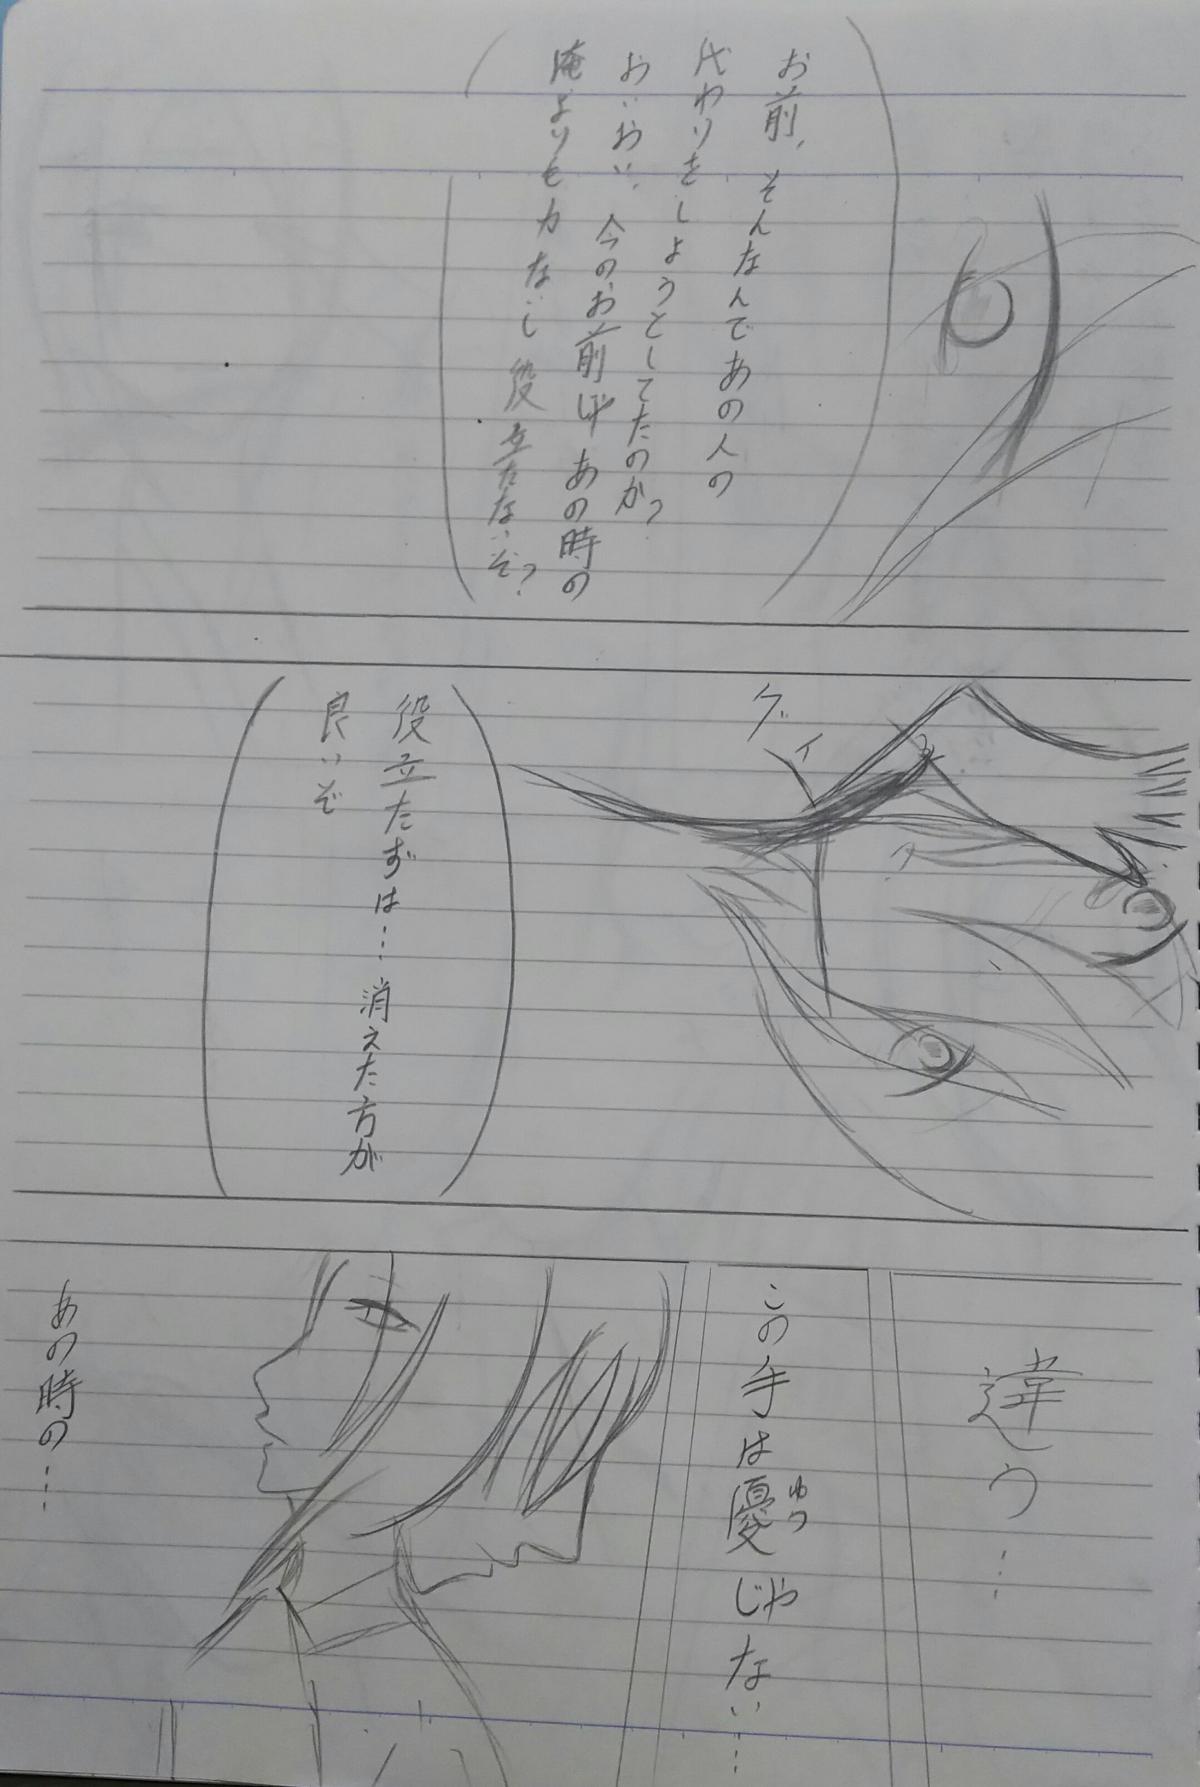 お前、そんなんであの人の
代わりをしようとしてたのか?
おいおい、今のお前じゃあの時の
俺よりも力ないし役立たないぞ?
グイ
役立たずは…消えた方が
良いぞ
違う…
この手は優じゃない…
ゆう
あの時の…